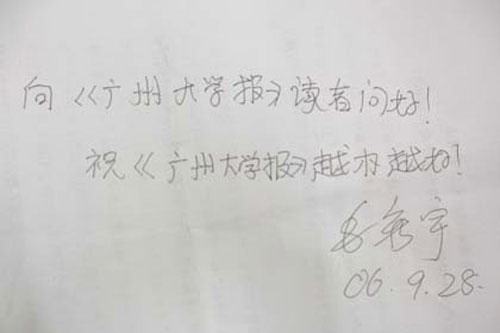 向《广州大学报》读者问好!
祝《广州大学报》越办越好!
06.9.28.